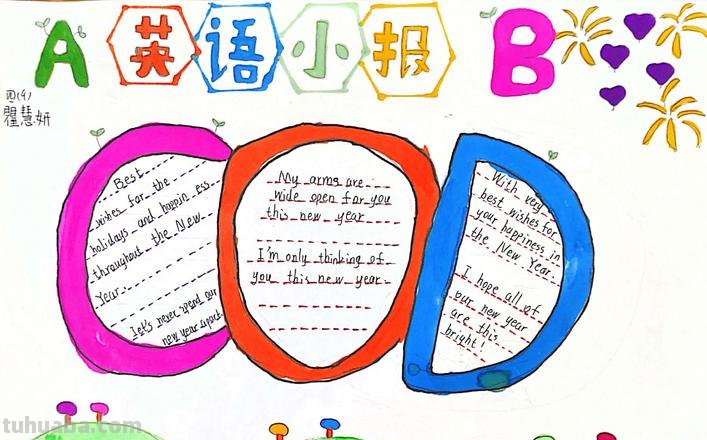 A 英语小报 B
四(4)
瞿慧妍
C O D
Best
wishes for the
holidays and happin ess
throughout the New
Year.
let's never spend our
new year apart.
My arms are
wide open for you
this new year
I'm only thinking of
you this new year.
With very
best wishes for
your happiness in
the New Year.
I hope all of
our new year
are this
bright!
tuhuaba.com